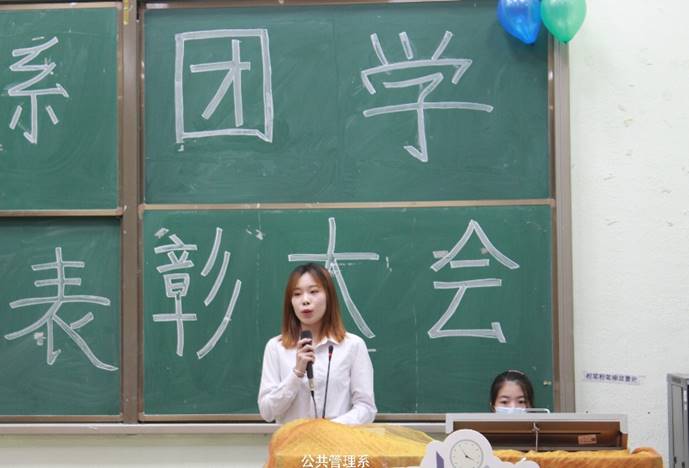 系团学
表彰大会
公共管理系